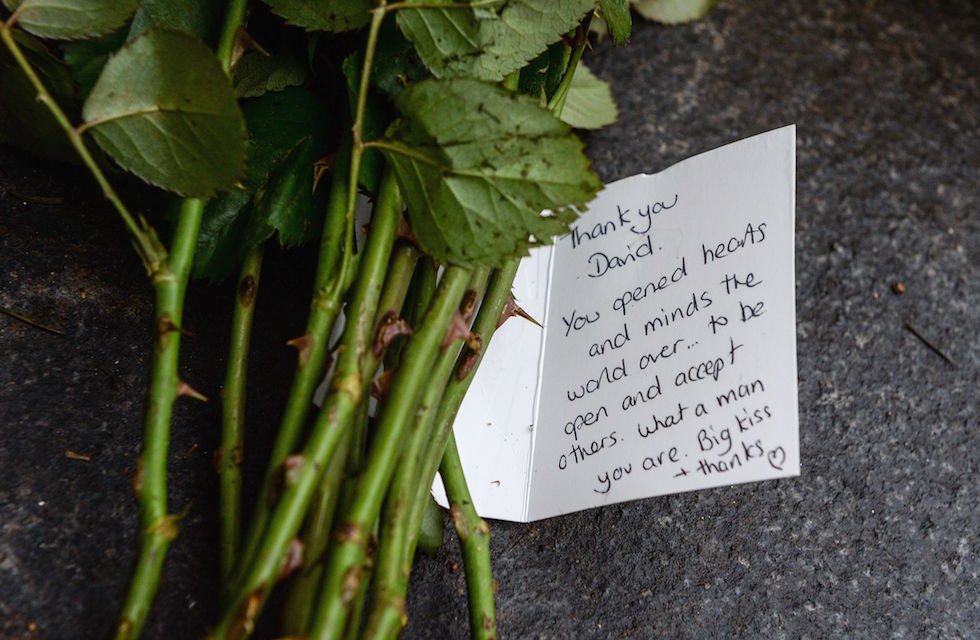 Thank you
David.
You opened hearts
and minds the
world over... to be
open and accept
others. What a man
you are. Big kiss
+ thanks ♡